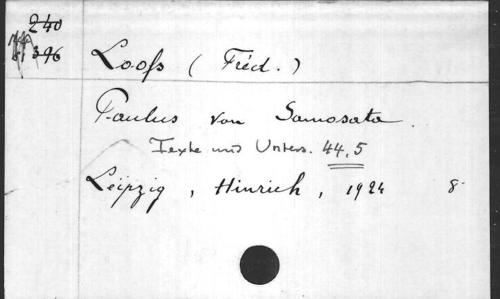 240
396
Loofs (Fréd.)
Paulus von Samosata
Texte und Unters. 44,5
Leipzig, Hinrich, 1924 8·